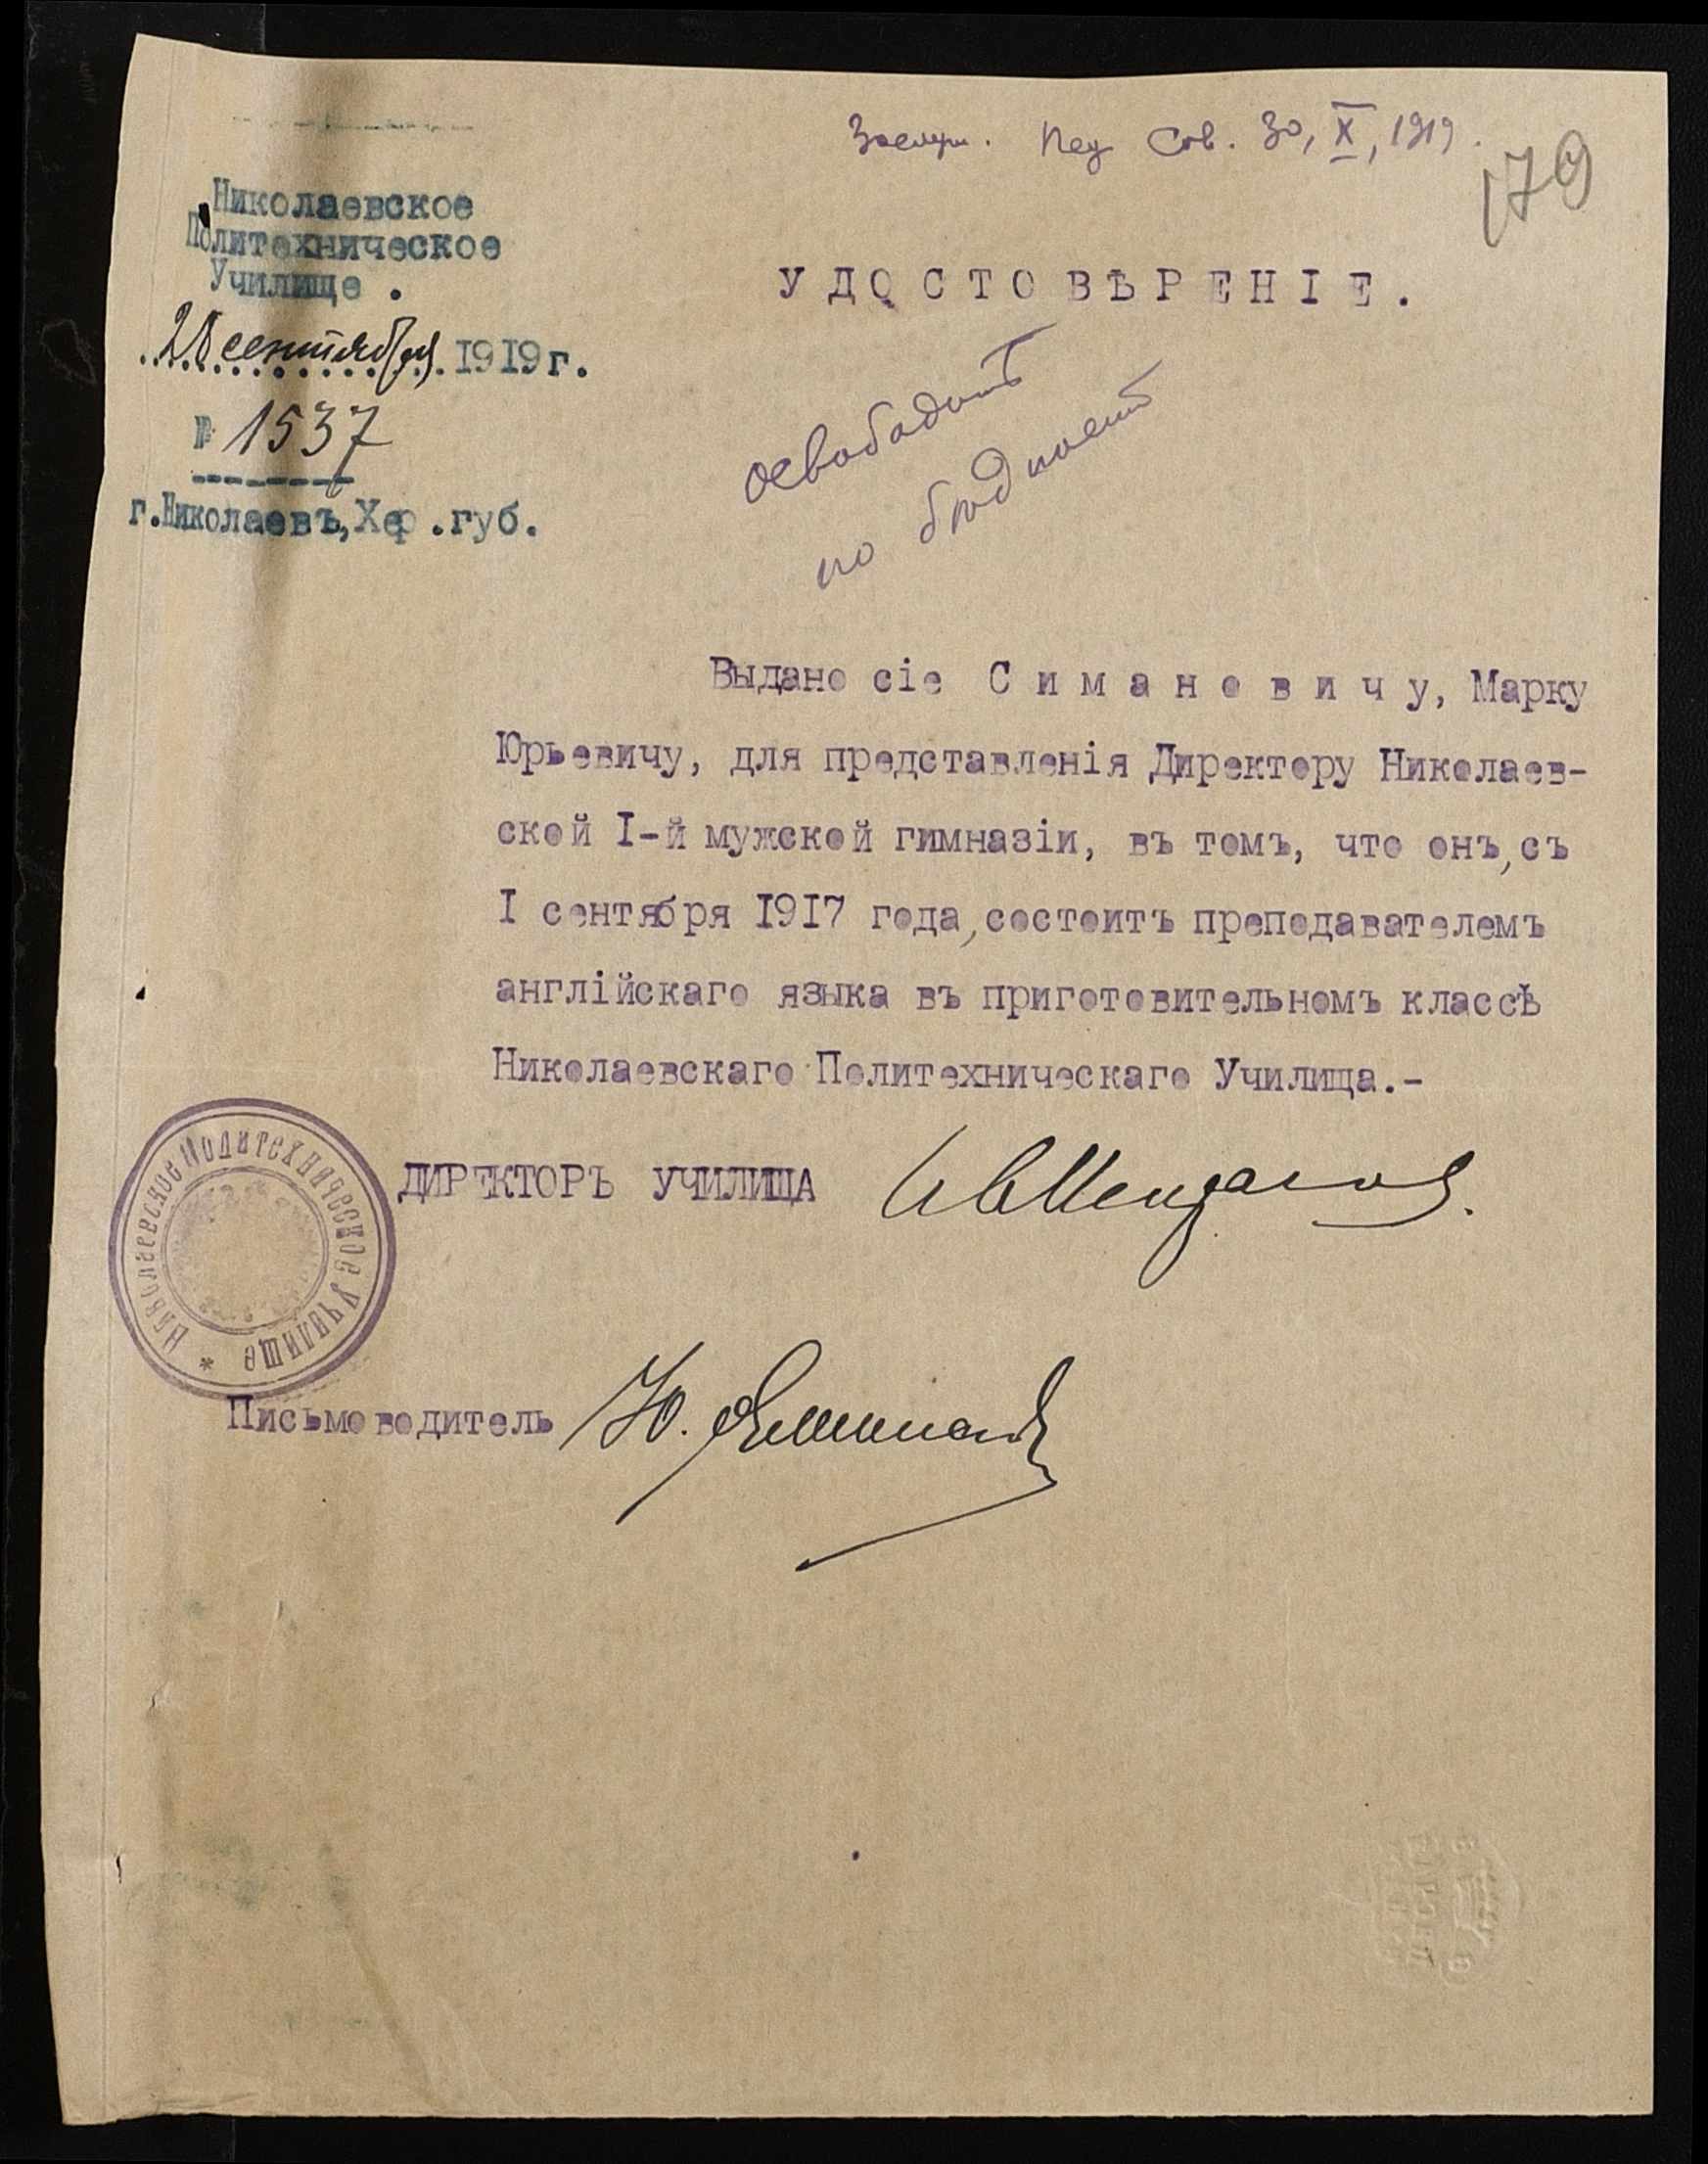 Заслуш. Пед Сов. 30, X, 1919.
179
Николаевское
Политехническое
Училище.
28 сентября 1919г.
№ 1537
г.Николаевъ, Хер.губ.
УДОСТОВѢРЕНІЕ.
освободить
по бѣдности
Выдано сіе Симановичу, Марку
Юрьевичу, для представленія Директору Николаев-
ской I-й мужской гимназіи, въ томъ, что онъ, съ
I сентября 1917 года, состоитъ преподавателемъ
англійскаго языка въ приготовительномъ классѣ
Николаевскаго Политехническаго Училища.-
ДИРЕКТОРЪ УЧИЛИЩА
Николаевское Политехническое Училище *
Письмоводитель Ю.